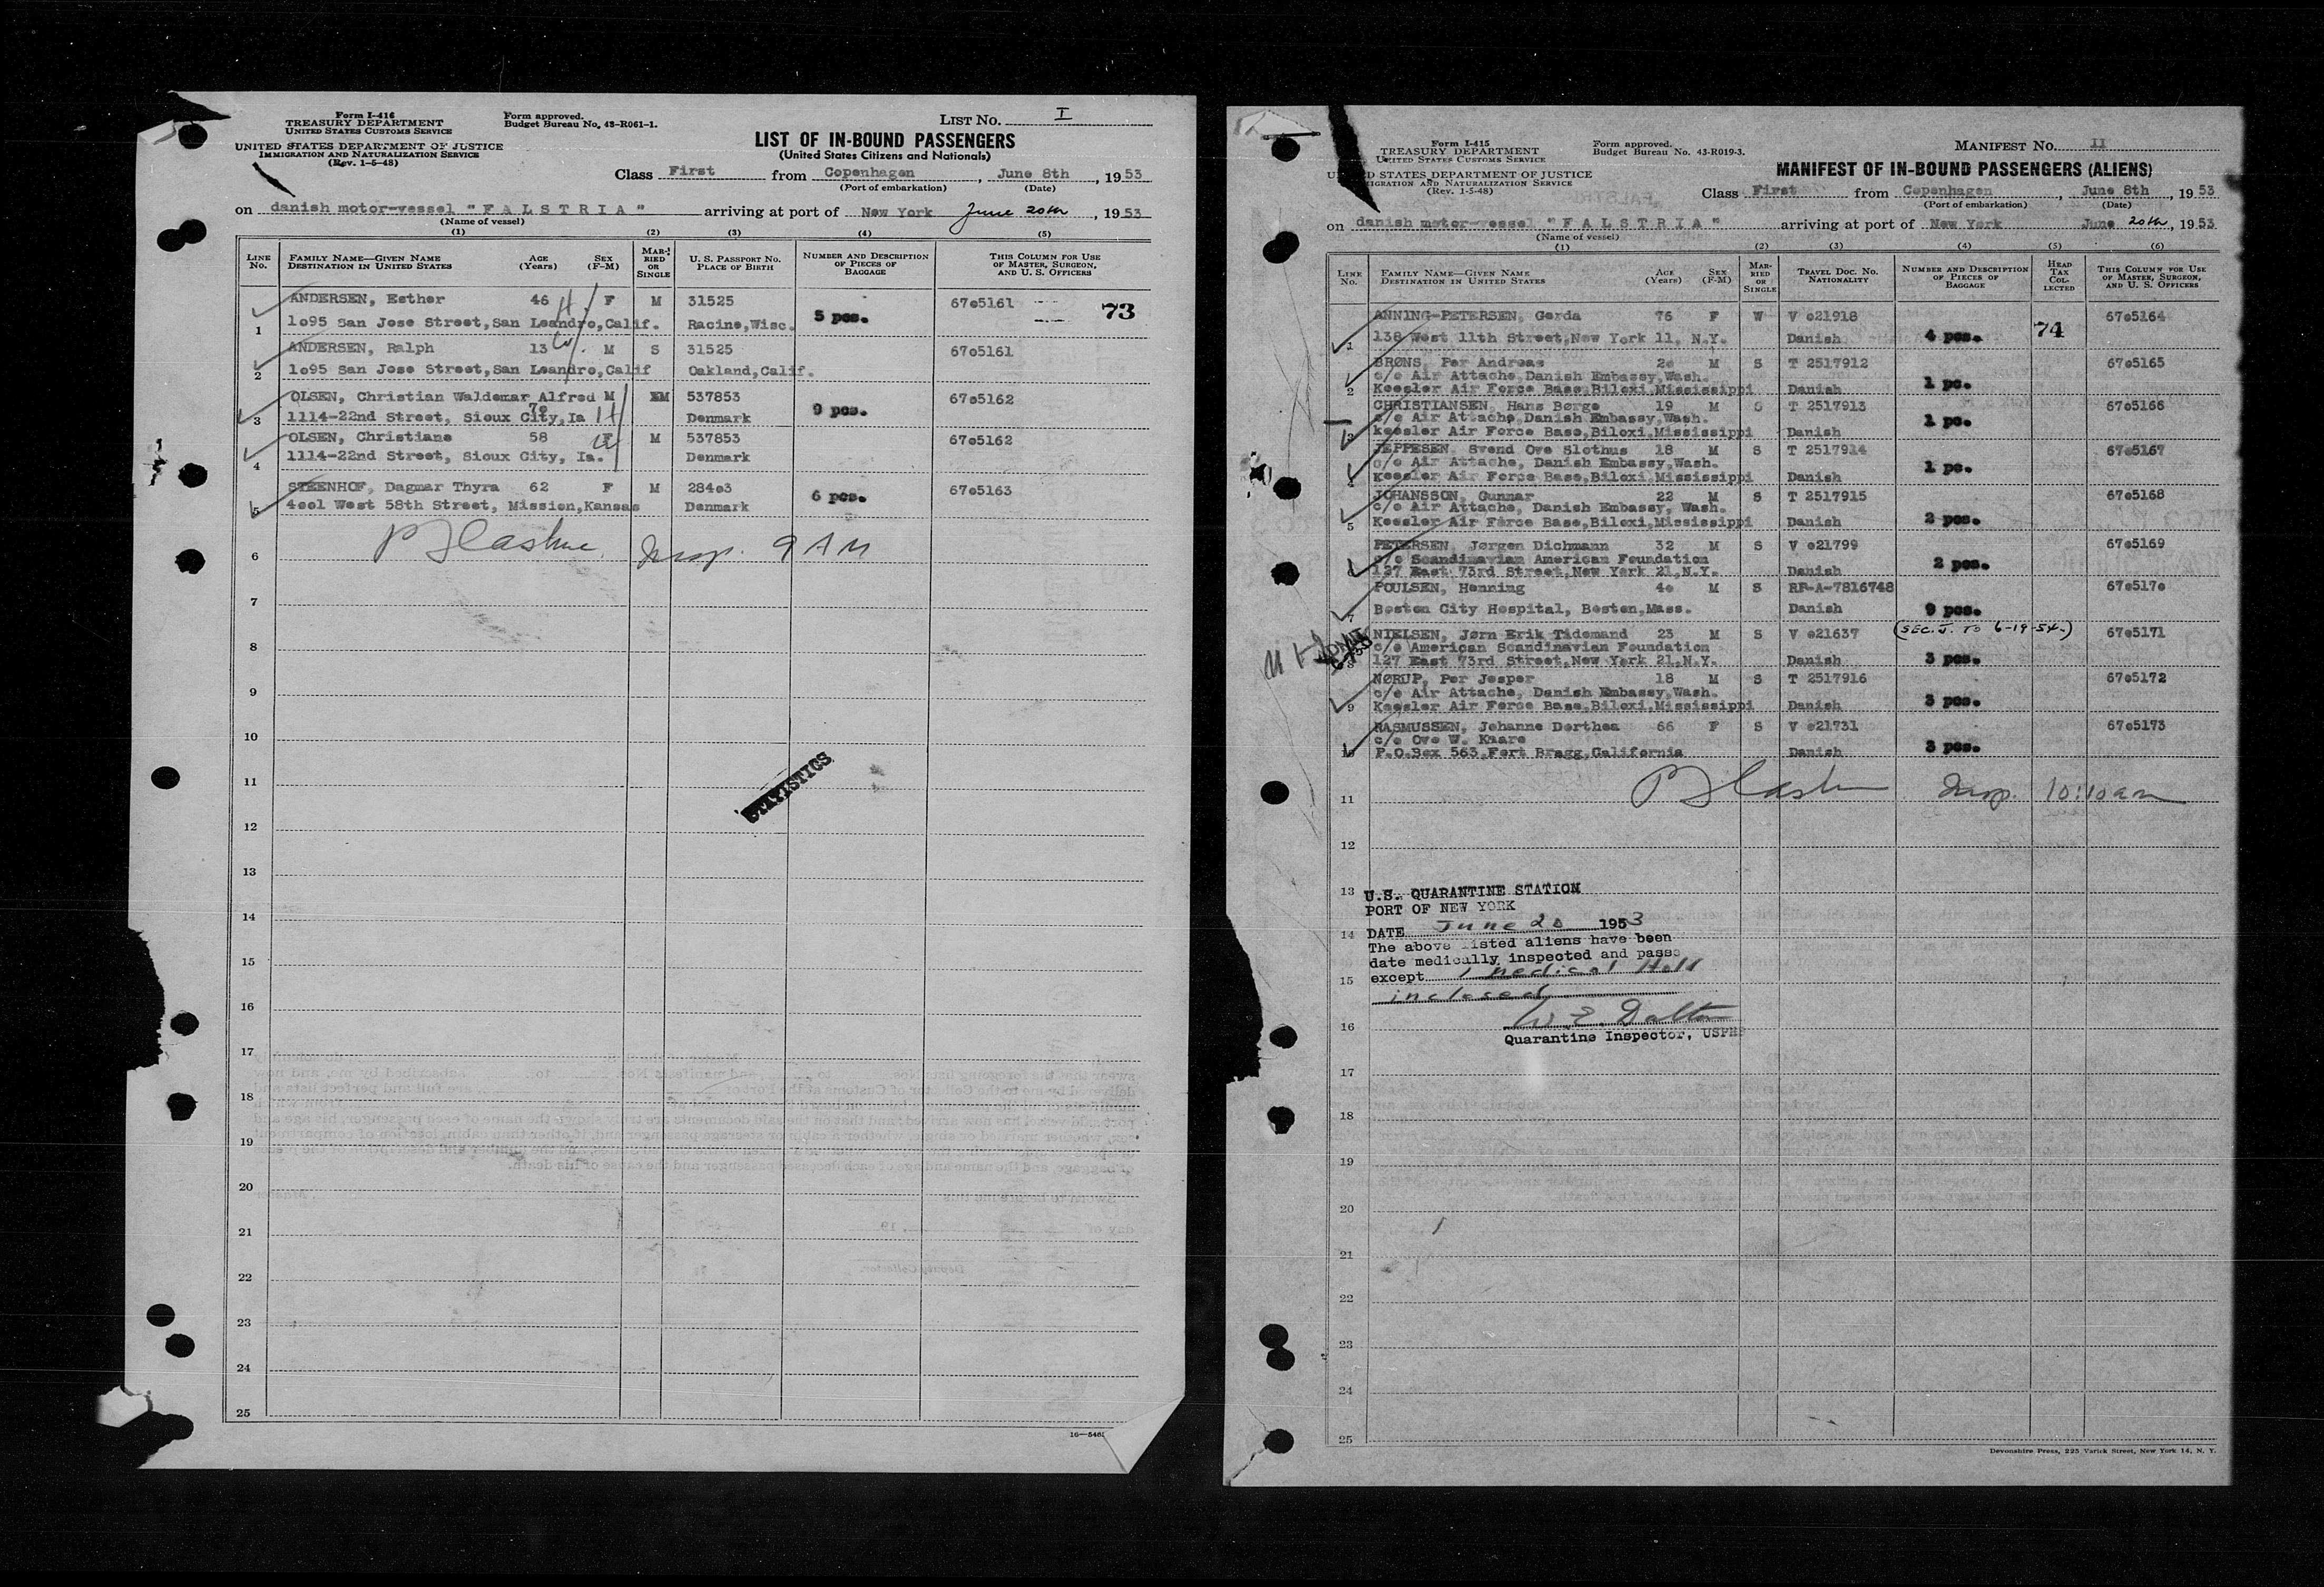 Form I-416
TREASURY DEPARTMENT
UNITED STATES CUSTOMS SERVICE
UNITED STATES DEPARTMENT OF JUSTICE
IMMIGRATION AND NATURALIZATION SERVICE
(Rev. 1-5-48)
Form approved.
Budget Bureau No. 43-R061-1.
LIST No. I
LIST OF IN-BOUND PASSENGERS
(United States Citizens and Nationals)
Class First from Copenhagen, June 8th, 1953
(Port of embarkation) (Date)
on danish motor-vessel "FALSTRIA" arriving at port of New York June 20th, 1953
(Name of vessel)
(1) (2) (3) (4) (5)
LINE No. FAMILY NAME—GIVEN NAME DESTINATION IN UNITED STATES AGE (Years) SEX (F-M) MARRIED OR SINGLE U. S. PASSPORT NO. PLACE OF BIRTH NUMBER AND DESCRIPTION OF PIECES OF BAGGAGE THIS COLUMN FOR USE OF MASTER, SURGEON, AND U. S. OFFICERS
ANDERSEN, Esther 46 F M 31525 67o5161 73
1 1o95 San Jose Street,San Leandro,Calif. Racine,Wisc. 5 pcs.
ANDERSEN, Ralph 13 M S 31525 67o5161
2 1o95 San Jose Street,San Leandro,Calif Oakland,Calif.
OLSEN, Christian Waldemar Alfred M M 537853 67o5162
7o
3 1114-22nd Street, Sioux City,Ia Denmark 9 pcs.
OLSEN, Christiane 58 F M 537853 67o5162
4 1114-22nd Street, Sioux City, Ia. Denmark
STEENHOF, Dagmar Thyra 62 F M 284o3 67o5163
5 4oo1 West 58th Street, Mission,Kansas Denmark 6 pcs.
6 Insp. 9 AM
7
8
9
10
11
STATISTICS
12
13
14
15
16
17
18
19
20
21
22
23
24
25
Form I-415
TREASURY DEPARTMENT
UNITED STATES CUSTOMS SERVICE
D STATES DEPARTMENT OF JUSTICE
IGRATION AND NATURALIZATION SERVICE
(Rev. 1-5-48)
Form approved.
Budget Bureau No. 43-R019-3.
MANIFEST No. II
MANIFEST OF IN-BOUND PASSENGERS (ALIENS)
Class First from Copenhagen, June 8th, 1953
(Port of embarkation) (Date)
on danish motor-vessel "FALSTRIA" arriving at port of New York June 20th, 1953
(Name of vessel)
(1) (2) (3) (4) (5) (6)
LINE No. FAMILY NAME—GIVEN NAME DESTINATION IN UNITED STATES AGE (Years) SEX (F-M) MARRIED OR SINGLE TRAVEL DOC. NO. NATIONALITY NUMBER AND DESCRIPTION OF PIECES OF BAGGAGE HEAD TAX COLLECTED THIS COLUMN FOR USE OF MASTER, SURGEON, AND U. S. OFFICERS
ANNING-PETERSEN, Gerda 76 F W V o21918 67o5164
1 138 West 11th Street,New York 11, N.Y. Danish 4 pcs. 74
BRØNS, Per Andreas 2o M S T 2517912 67o5165
c/o Air Attache,Danish Embassy,Wash.
2 Keesler Air Force Base,Biloxi,Mississippi Danish 1 pc.
CHRISTIANSEN, Hans Børge 19 M S T 2517913 67o5166
c/o Air Attache,Danish Embassy,Wash.
3 Keesler Air Force Base,Biloxi,Mississippi Danish 1 pc.
JEPPESEN, Svend Ove Slothus 18 M S T 2517914 67o5167
c/o Air Attache, Danish Embassy,Wash.
4 Keesler Air Force Base,Biloxi,Mississippi Danish 1 pc.
JOHANSSON, Gunnar 22 M S T 2517915 67o5168
c/o Air Attache, Danish Embassy, Wash.
5 Keesler Air Force Base,Biloxi,Mississippi Danish 2 pcs.
PETERSEN, Jørgen Dichmann 32 M S V o21799 67o5169
c/o Scandinavian American Foundation
6 127 East 73rd Street,New York 21,N.Y. Danish 2 pcs.
POULSEN, Henning 4o M S RP-A-7816748 67o517o
7 Boston City Hospital, Boston,Mass. Danish 9 pcs.
NIELSEN, Jørn Erik Tidemand 23 M S V o21637 (SEC. J. TO 6-19-54) 67o5171
c/o American Scandinavian Foundation
8 127 East 73rd Street,New York 21,N.Y. Danish 3 pcs.
NØRUP, Per Jesper 18 M S T 2517916 67o5172
c/o Air Attache, Danish Embassy,Wash.
9 Keesler Air Force Base,Biloxi,Mississippi Danish 3 pcs.
RASMUSSEN, Johanne Dorthea 66 F S V o21731 67o5173
c/o Ove W. Kaare
10 P.O.Box 563,Fort Bragg,California Danish 3 pcs.
11 Insp. 10:10 am
12
13 U.S. QUARANTINE STATION
PORT OF NEW YORK
14 DATE June 20 1953
The above listed aliens have been
date medically inspected and passe
15 except 1 medical Hold
inclosed
16 W. E. Dalton
Quarantine Inspector, USPHS
17
18
19
20
21
22
23
24
25
Devonshire Press, 225 Varick Street, New York 14, N. Y.